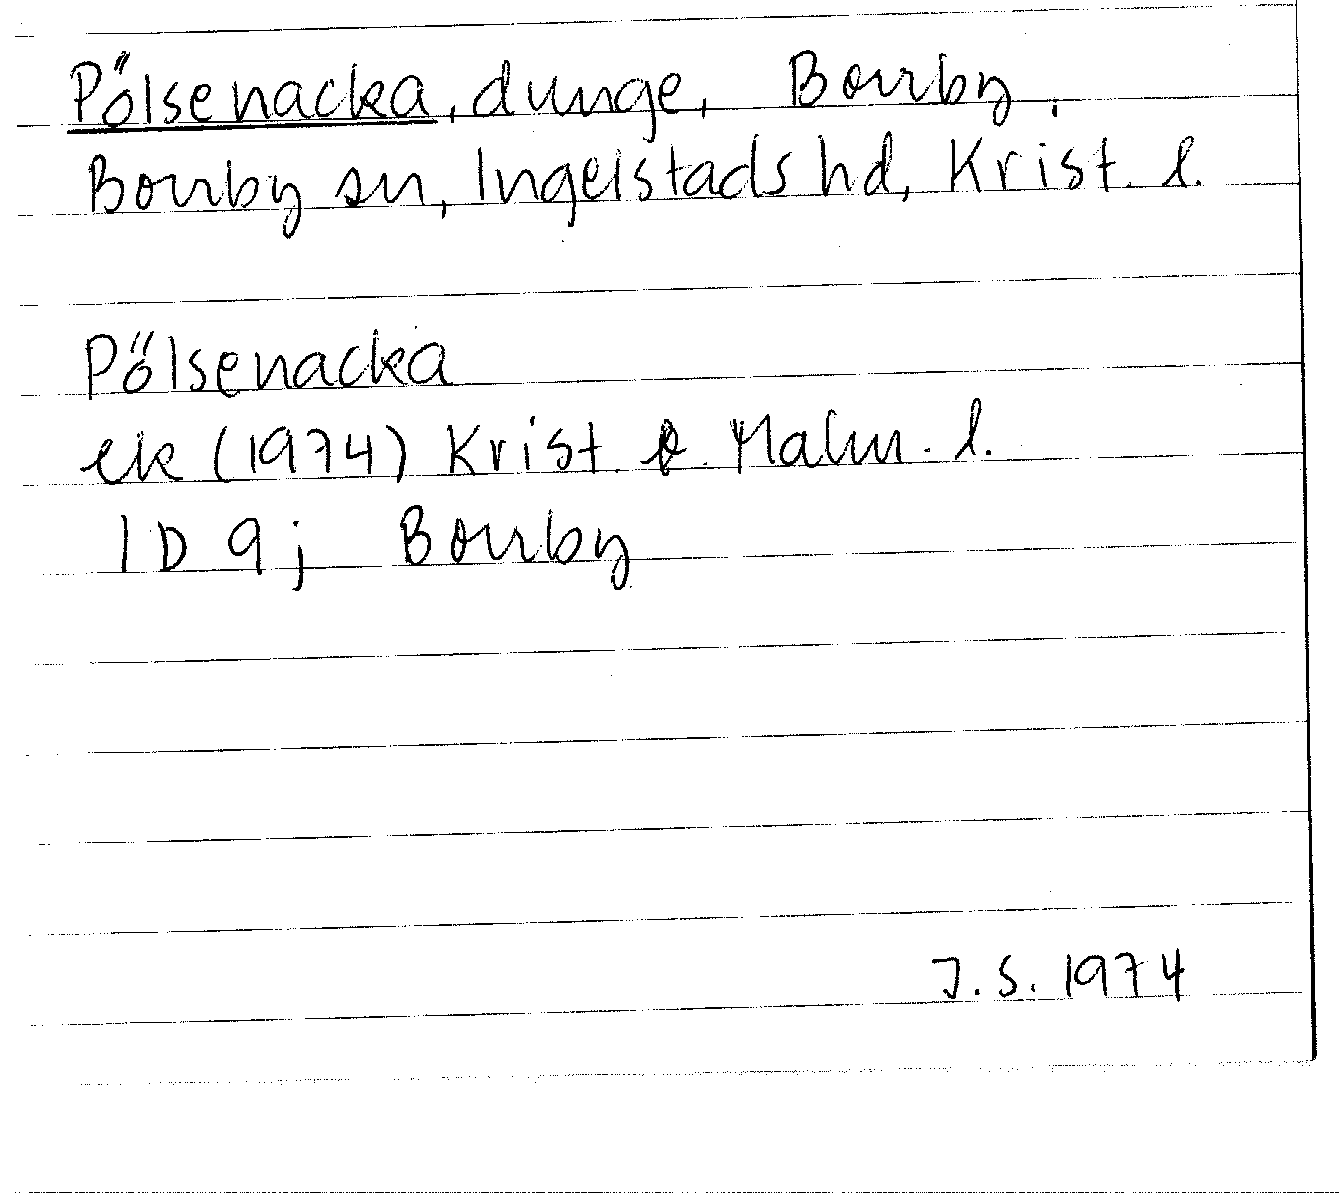 Pölsenacka, dunge, Borrby,
Borrby sn, Ingelstads hd, Krist. l.
Pölsenacka
ek (1974) Krist. o. Malm. l.
1D 9j Borrby
J.S. 1974